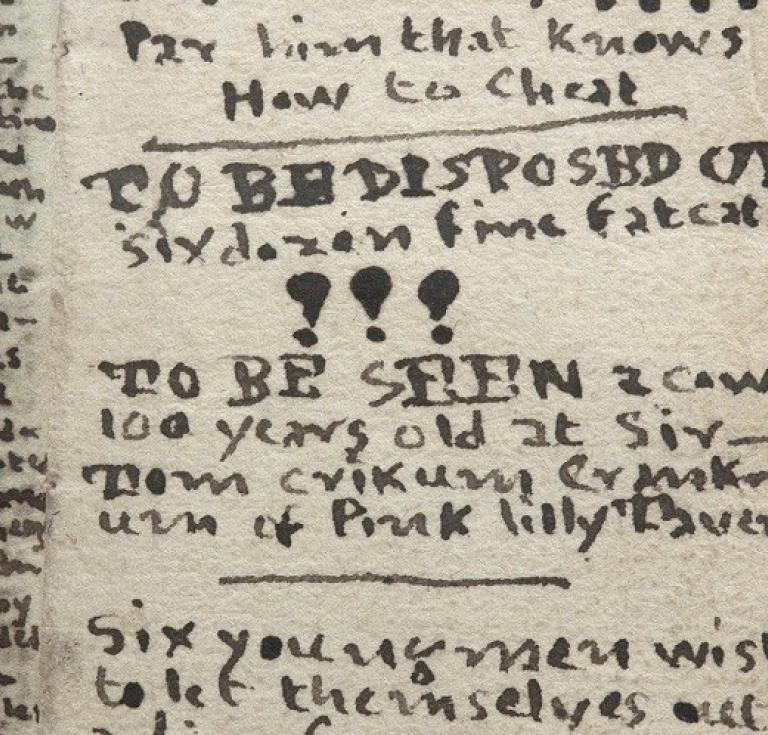 Pay him that knows
How to Cheat
TO BE DISPOSED OF
six dozen fine fatcat
!!!
TO BE SEEN a cow
100 years old at Sir—
Tom crikum Crank
urn of Pink lilly Taver
Six young men wis
to let themselves out